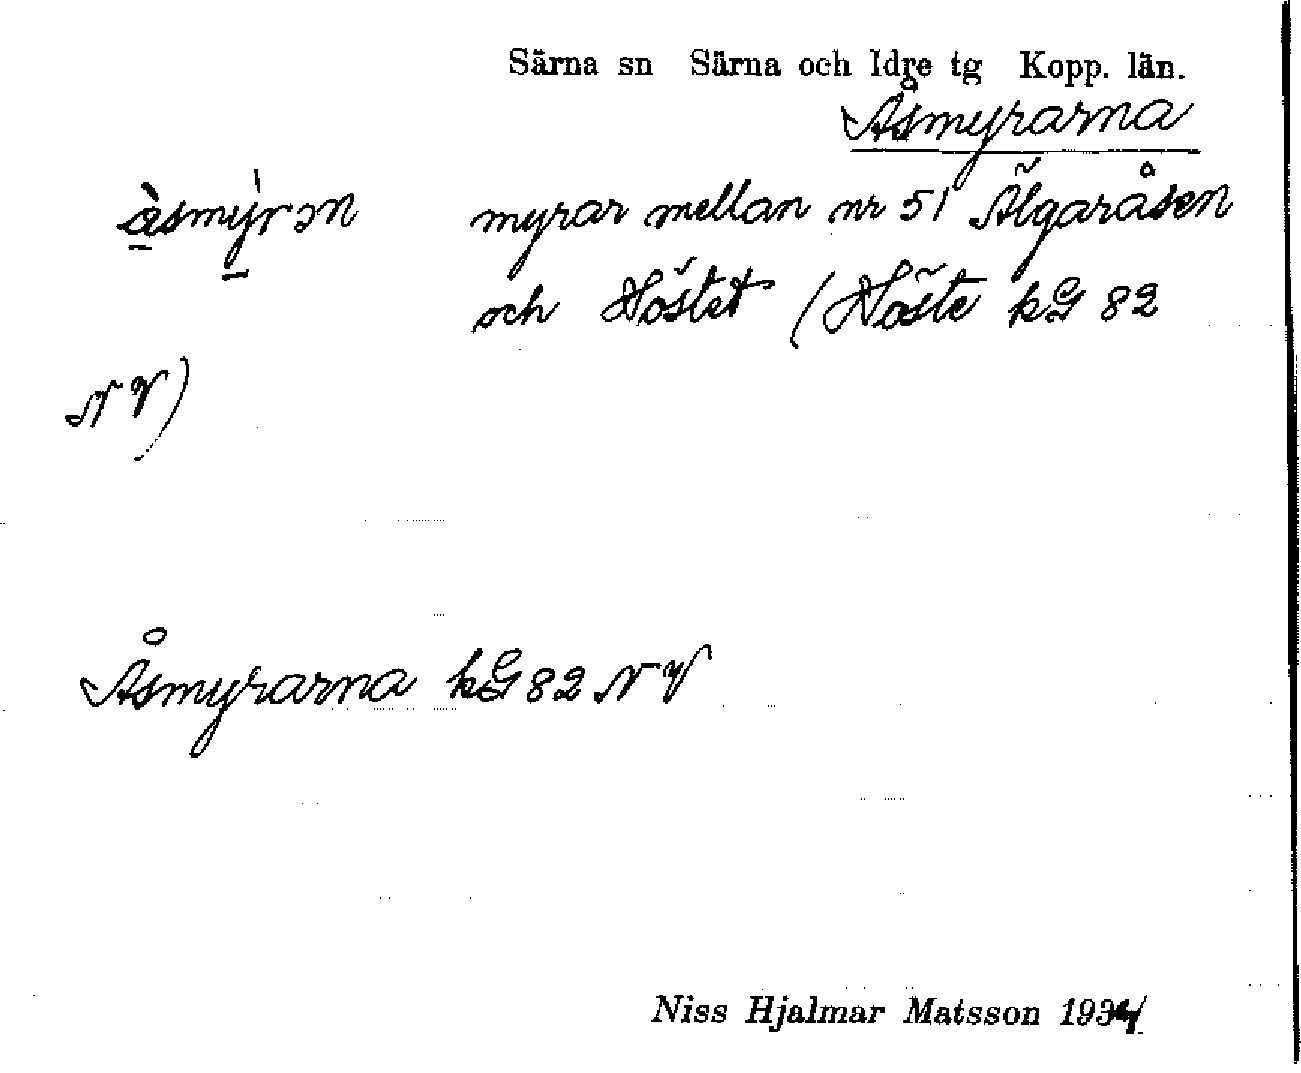 Särna sn Särna och Idre tg Kopp. län.
Åsmyrarna
åsmyrən myrar mellan nr 51 Älgaråsen
och Höstet (Höste kG 82
NV)
Åsmyrarna kG 82 NV
Niss Hjalmar Matsson 1934